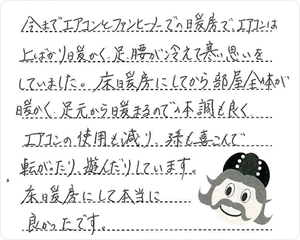 今までエアコンとファンヒーターでの暖房で、エアコンは
上ばかり暖かく、足、腰が冷えて寒い思いを
していました。床暖房にしてから部屋全体が
暖かく、足元から暖まるので体調も良く
エアコンの使用も減り、孫も喜こんで
転がったり、遊んだりしています。
床暖房にして本当に
良かったです。